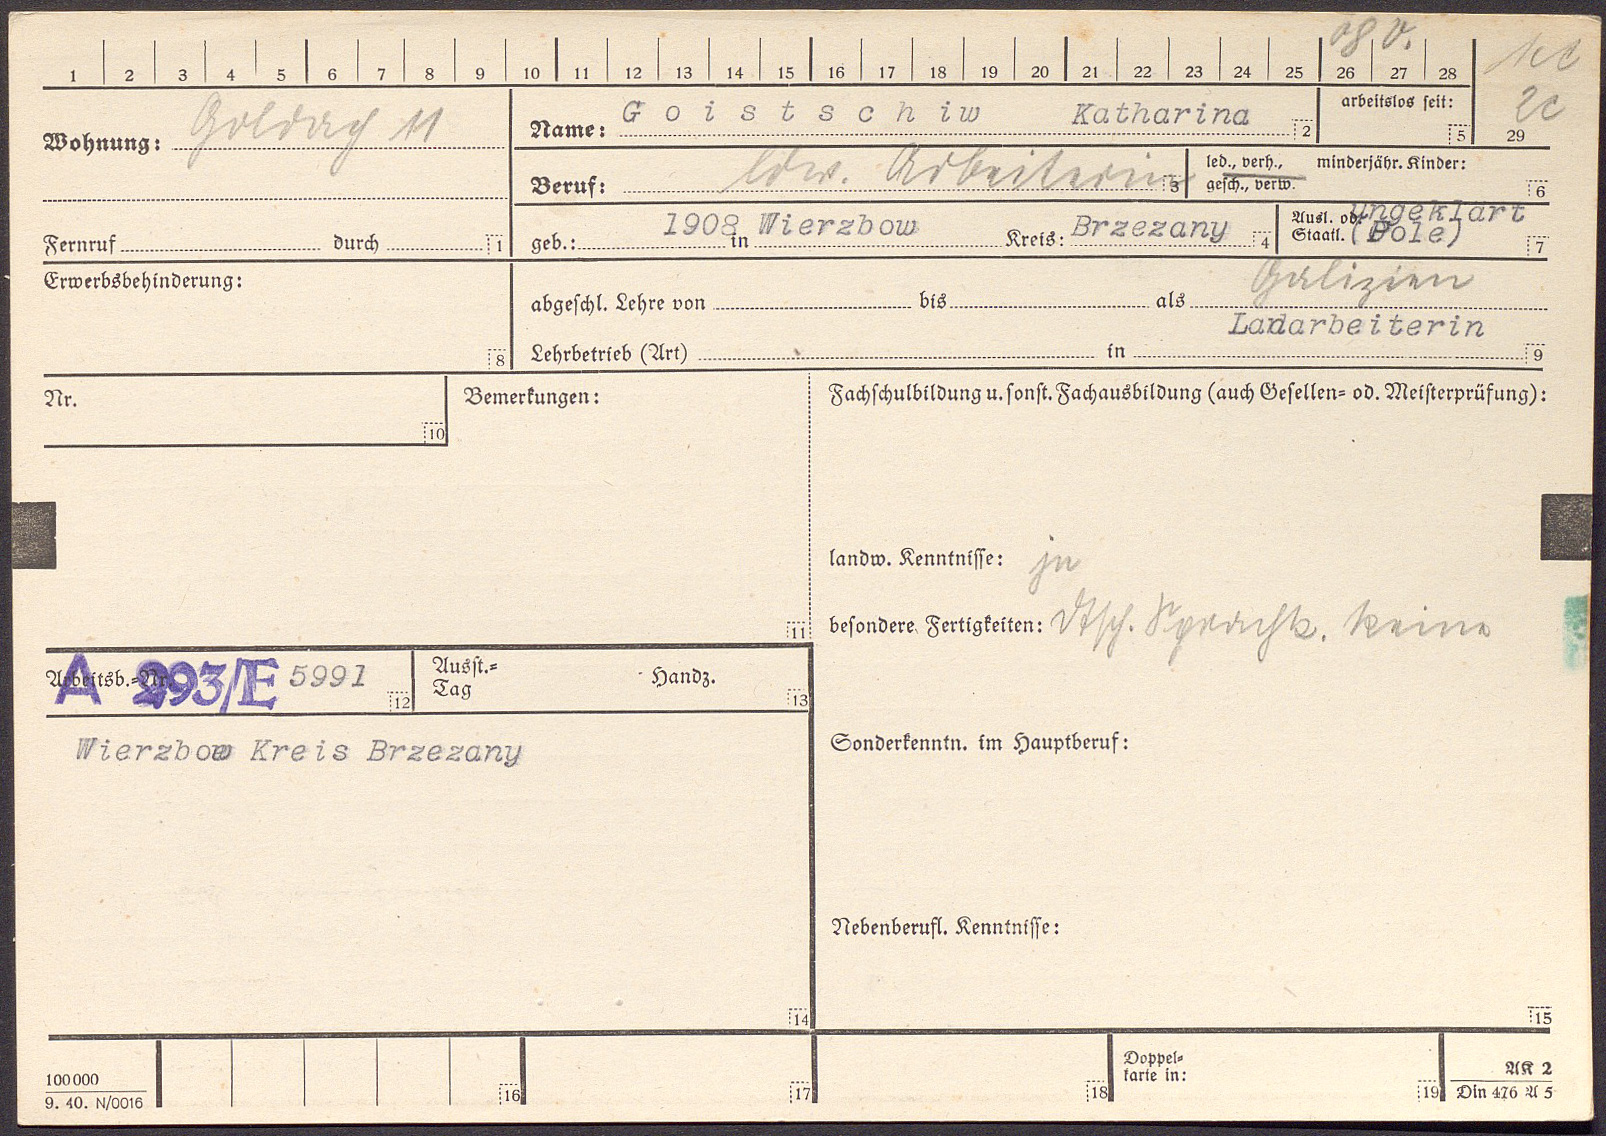 08 V.
1 2 3 4 5 6 7 8 9 10 11 12 13 14 15 16 17 18 19 20 21 22 23 24 25 26 27 28
2c
29
Wohnung: Goldach 11
Name: Goistschiw Katharina 2
arbeitslos seit: 5
Beruf: ldw. Arbeiterin 3
led., verh., gesch., verw.
minderjähr. Kinder: 6
Fernruf durch 1
geb.: 1908 in Wierzbow Kreis: Brzezany 4
Ausl. od. Staatl. ungeklärt (Pole) 7
Erwerbsbehinderung: 8
Galizien
abgeschl. Lehre von bis als
Ladarbeiterin
Lehrbetrieb (Art) in 9
Nr. 10
Bemerkungen: 11
Fachschulbildung u. sonst. Fachausbildung (auch Gesellen= od. Meisterprüfung):
landw. Kenntnisse: ja
besondere Fertigkeiten: Dtsch. Sprachk. keine
Arbeitsb.=Nr. A 293/E 5991 12
Ausst.= Tag Handz. 13
Wierzbow Kreis Brzezany
Sonderkenntn. im Hauptberuf:
Nebenberufl. Kenntnisse:
14
15
100000
9. 40. N/0016
16 17 18
Doppel= karte in: 19
AK 2
Din 476 A 5